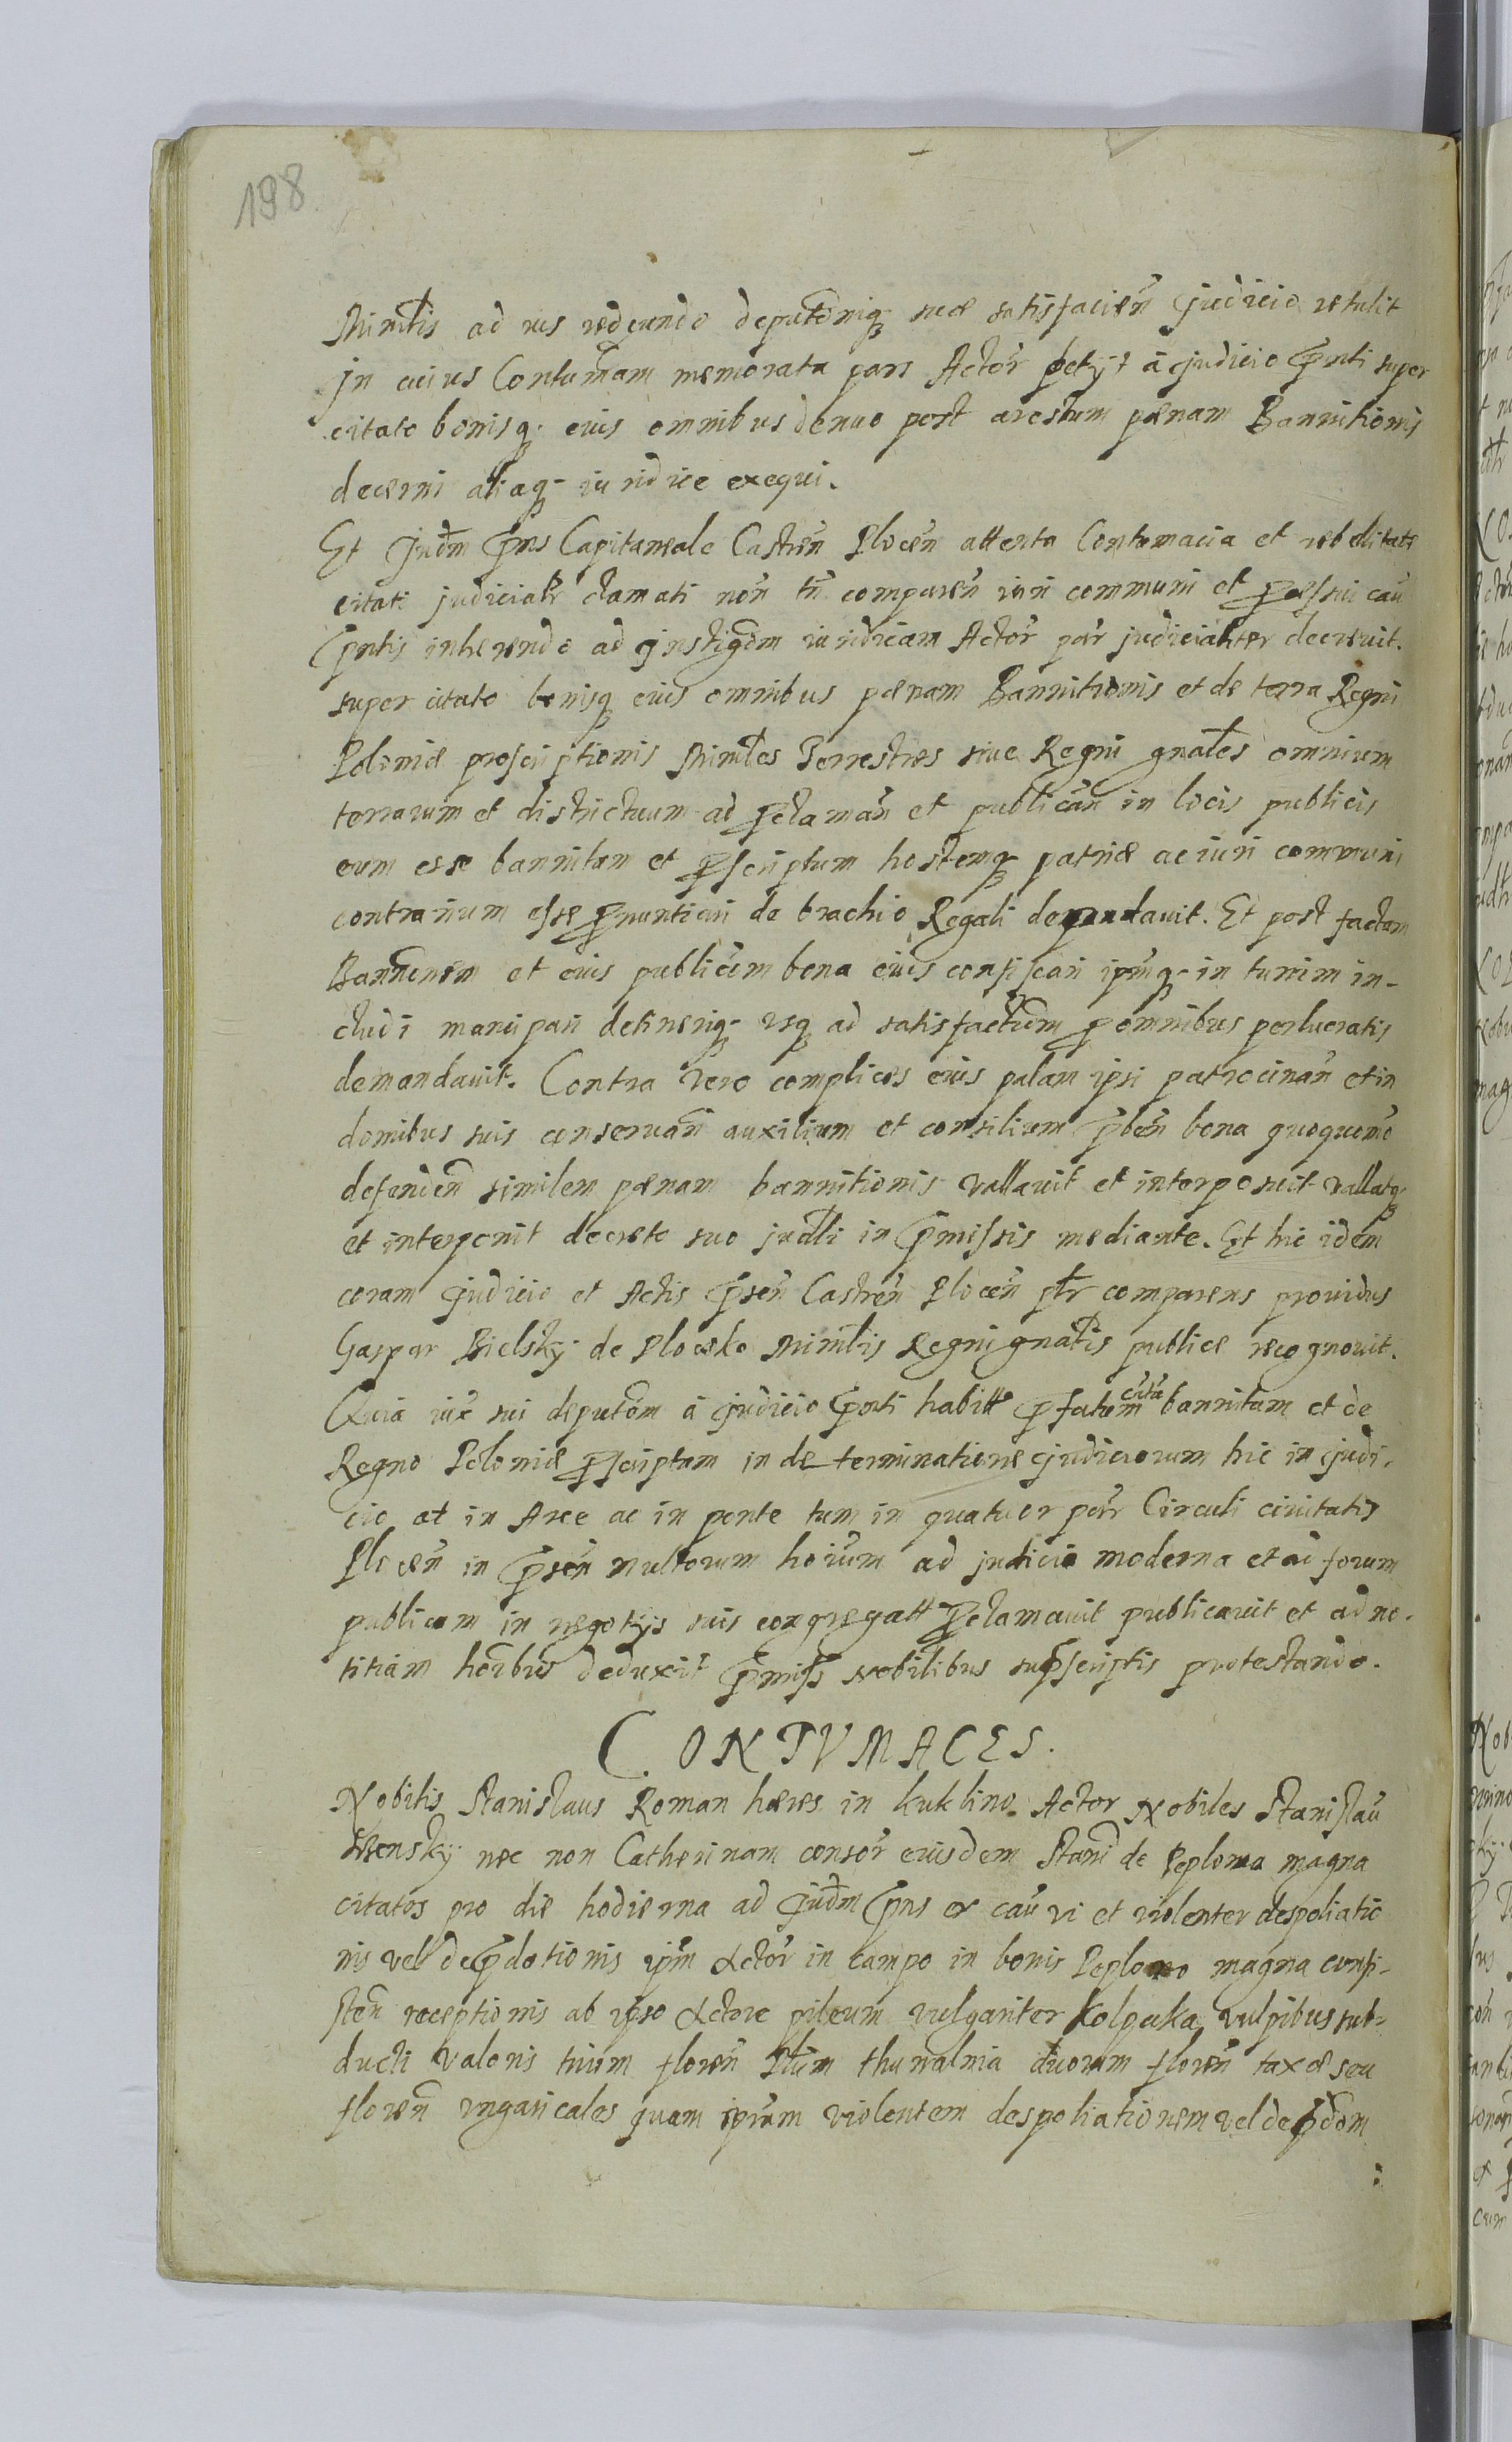 198
Minist̃lis ad ius reddendo deputõniq; suæ satisfacien̄ Judicio retulit
In cuius Contum̃am memorata pars Actor̃ petijt a judicio p̄nti super
citato bonisq; eius omnibus denuo post arestum pænam Bannitionis
decerni aliaq; iuridice exequi.
Et Jud̃m p̄ns Capitaneale Castren̄ Plocen̄ attenta Contumacia et rebellitate
citati judicialr̃ clamati non̄ tn̄ comparen̄ iuri communi et p̄cessui cau
p̄ntis inherendo ad Instigõm iuridicam Actor̃ par̃ judicialiter decreuit.
super citato bonisq; eius omnibus pænam Bannitionis et de terra Regni
Poloniæ proscriptionis Minl̃es Terrestres siue Regni gnãles omnium
terrarum et districtuum ad p̄claman̄ et publican̄ in locis publicis
eum esse bannitum et p̄scriptum hostemq; patriæ ac iuri communi
contrarium esse p̄nuntiari de brachio Regali demandauit. Et post factam
Bannõnem et eius publicõm bona eius confiscari ipm̄q; in turrim in-
cludi mancipari detineriq; vsq; ad satisfactõm p̄ omnibus perlucratis
demandauit. Contra vero complices eius palam ipsi patrocinan̄ et in
domibus suis conseruan̄ auxilium et consilium p̄ben̄ bona quoquomõ
defenden̄ similem pænam bannitionis vallauit et interposuit vallatq;
et interponit decreto suo judl̃i in p̄missis mediante. Et hic idem
coram Judicio et Actis p̄sen̄ Castren̄ Plocen̄ plr̃ comparens prouidus
Gaspar Bielsky de Plocsko Minl̃is Regni gnãlis publice recognouit.
Quia iux̃ sui deputõm a Judicio p̄nti habitt p̄fatum citat̃ bannitum et de
Regno Poloniæ p̄scriptum in de terminatione Judiciorum hic in Judi-
cio at in Arce ac in ponte tum in quatuor par̃ Circuli ciuitatis
Plocen̄ in p̄sen̄ multorum hoĩum ad judicia moderna et ad forum
publicum in negotijs suis congregatt p̄clamauit publicauit et ad no-
titiam hoĩbus deduxit p̄miss̃ Nobilibus sup̄scriptis protestando.
CONTVMACES.
Nobilis Stanislaus Roman hæres in Kuklino Actor Nobiles Stanislau
nec non Catherinam consor̃ eiusdem Stani de Peplowa magna
citatos pro die hodierna ad Jud̃m p̄ns er cau vi et violenter despoliatio
nis vel dep̄dationis ipm̄ Actor̃ in campo in bonis Peplowo magna consi-
sten̄ receptionis ab ipso Actore pileum vulgariter kolpaka vulpibus sub-
ducti valoris trium floren̄ Pl̃m thunalnia duorum floren̄ taxæ seu
floren̄ vngaricales quam ipsam violentem despoliationem vel dep̄dõm